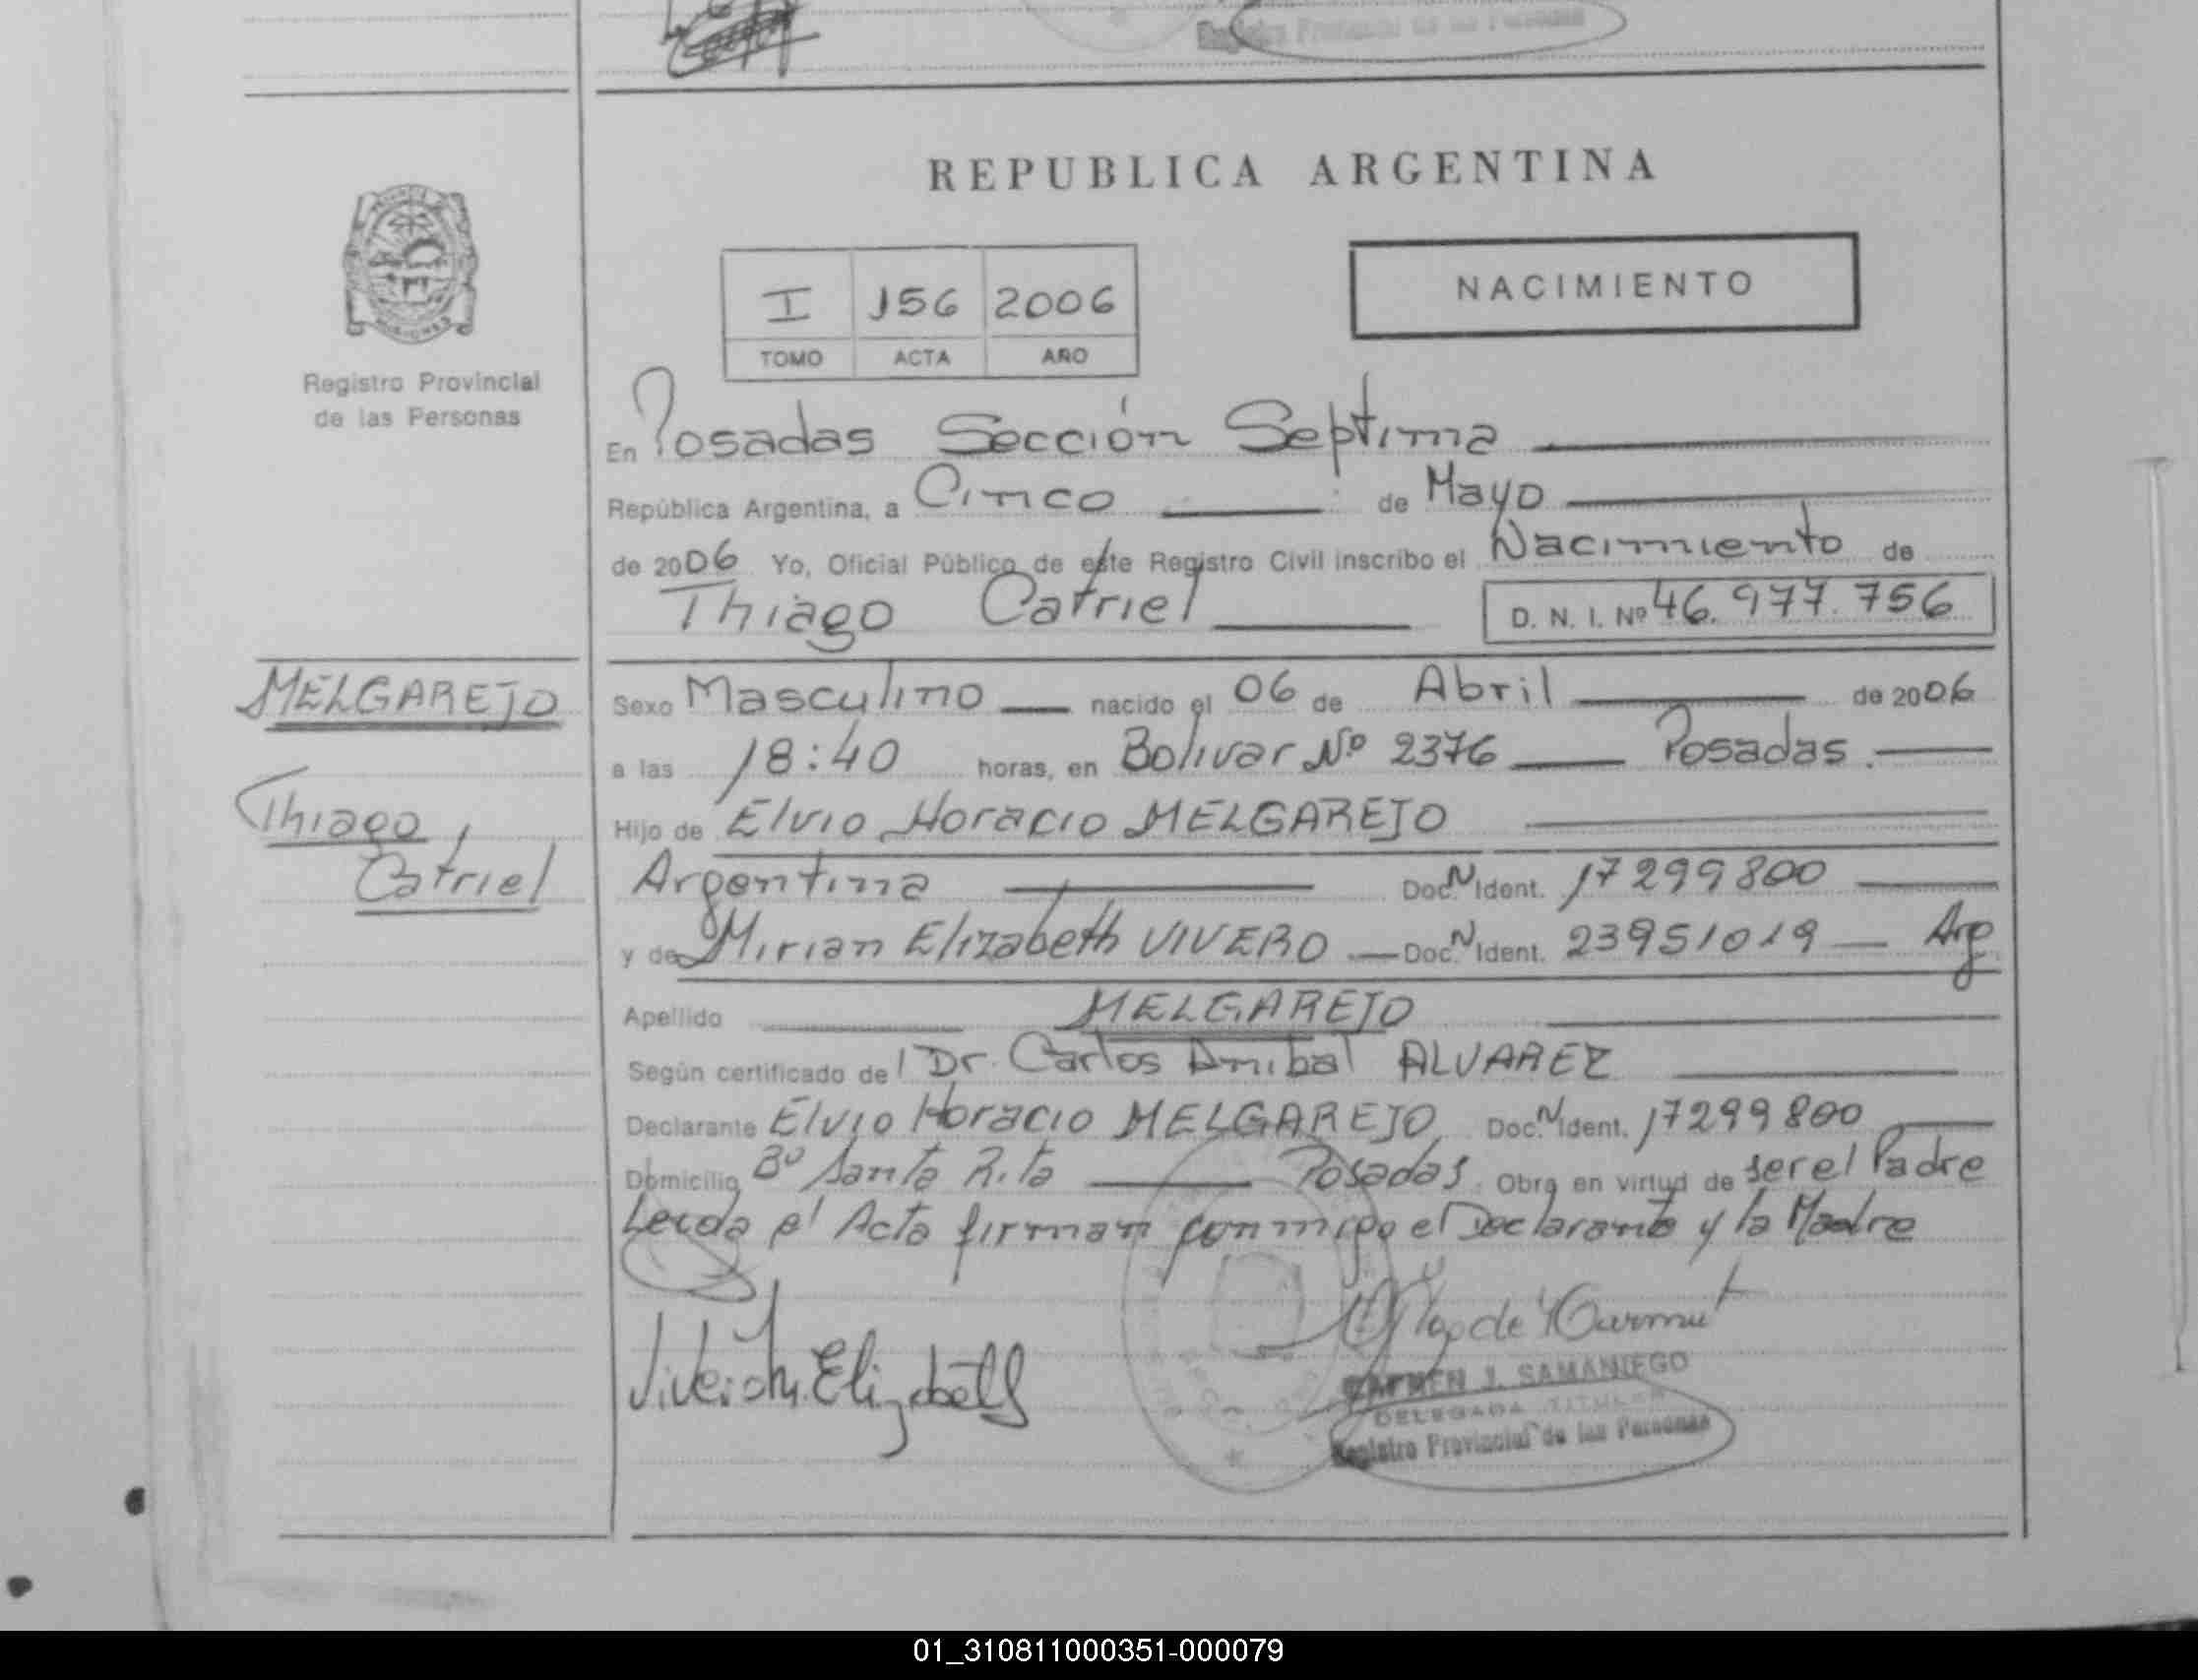 Registro Provincial de las Personas
REPUBLICA ARGENTINA
NACIMIENTO
I 156 2006
TOMO ACTA AÑO
MISIONES
Registro Provincial
de las Personas
En Posadas Sección Septima
República Argentina, a Cinco de Mayo
de 2006 Yo, Oficial Público de este Registro Civil inscribo el Nacimiento de
Thiago Catriel D. N. I. Nº 46.977.756
MELGAREJO
Thiago
Catriel
Sexo Masculino nacido el 06 de Abril de 2006
a las 18:40 horas, en Bolivar Nº 2376 Posadas.
Hijo de Elvio Horacio MELGAREJO
Argentina Doc. N Ident. 17299800
y de Mirian Elizabeth VIVERO Doc. N Ident. 23951019 Arg
Apellido MELGAREJO
Según certificado del Dr. Carlos Anibal ALVAREZ
Declarante Elvio Horacio MELGAREJO Doc. N Ident. 17299800
Domicilio Bº Santa Rita Posadas. Obra en virtud de ser el Padre
Leida el Acta firman conmigo el Declarante y la Madre
Elizabeth
CARMEN J. SAMANIEGO
DELEGADA TITULAR
Registro Provincial de las Personas
01_310811000351-000079